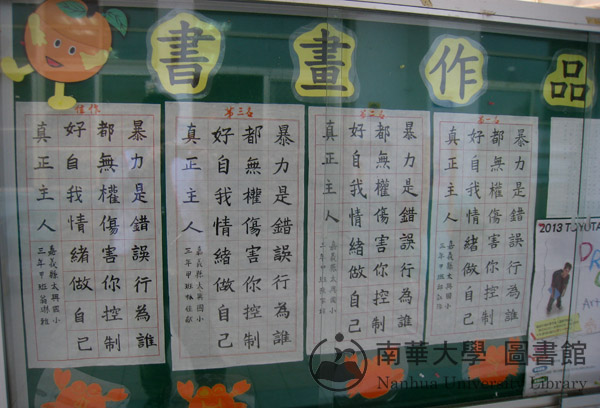 書畫作品
第一名
暴力是錯誤行為誰
都無權傷害你控制
好自我情緒做自己
真正主人
嘉義縣太興國小
第二名
暴力是錯誤行為誰
都無權傷害你控制
好自我情緒做自己
真正主人
嘉義縣太興國小
第三名
暴力是錯誤行為誰
都無權傷害你控制
好自我情緒做自己
真正主人
嘉義縣太興國小
三年甲班
佳作
暴力是錯誤行為誰
都無權傷害你控制
好自我情緒做自己
真正主人
嘉義縣太興國小
三年甲班
2013 TOYOTA
南華大學 圖書館
Nanhua University Library